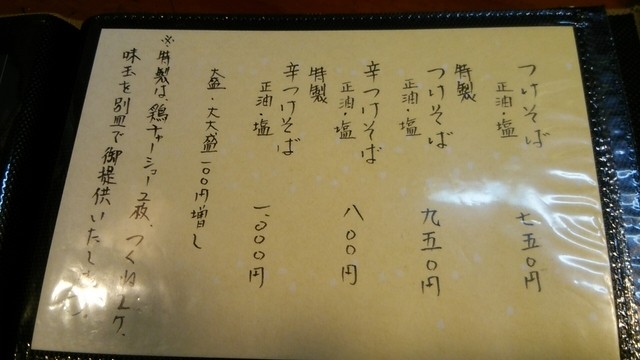 つけそば
正油・塩 七五〇円
特製
つけそば
正油・塩 九五〇円
辛つけそば
正油・塩 八〇〇円
特製
辛つけそば
正油・塩 一、〇〇〇円
大盛・大大盛一〇〇円増し
※特製は、鶏チャーシュー2枚、つくね2ケ、
味玉を別皿で御提供いたします。